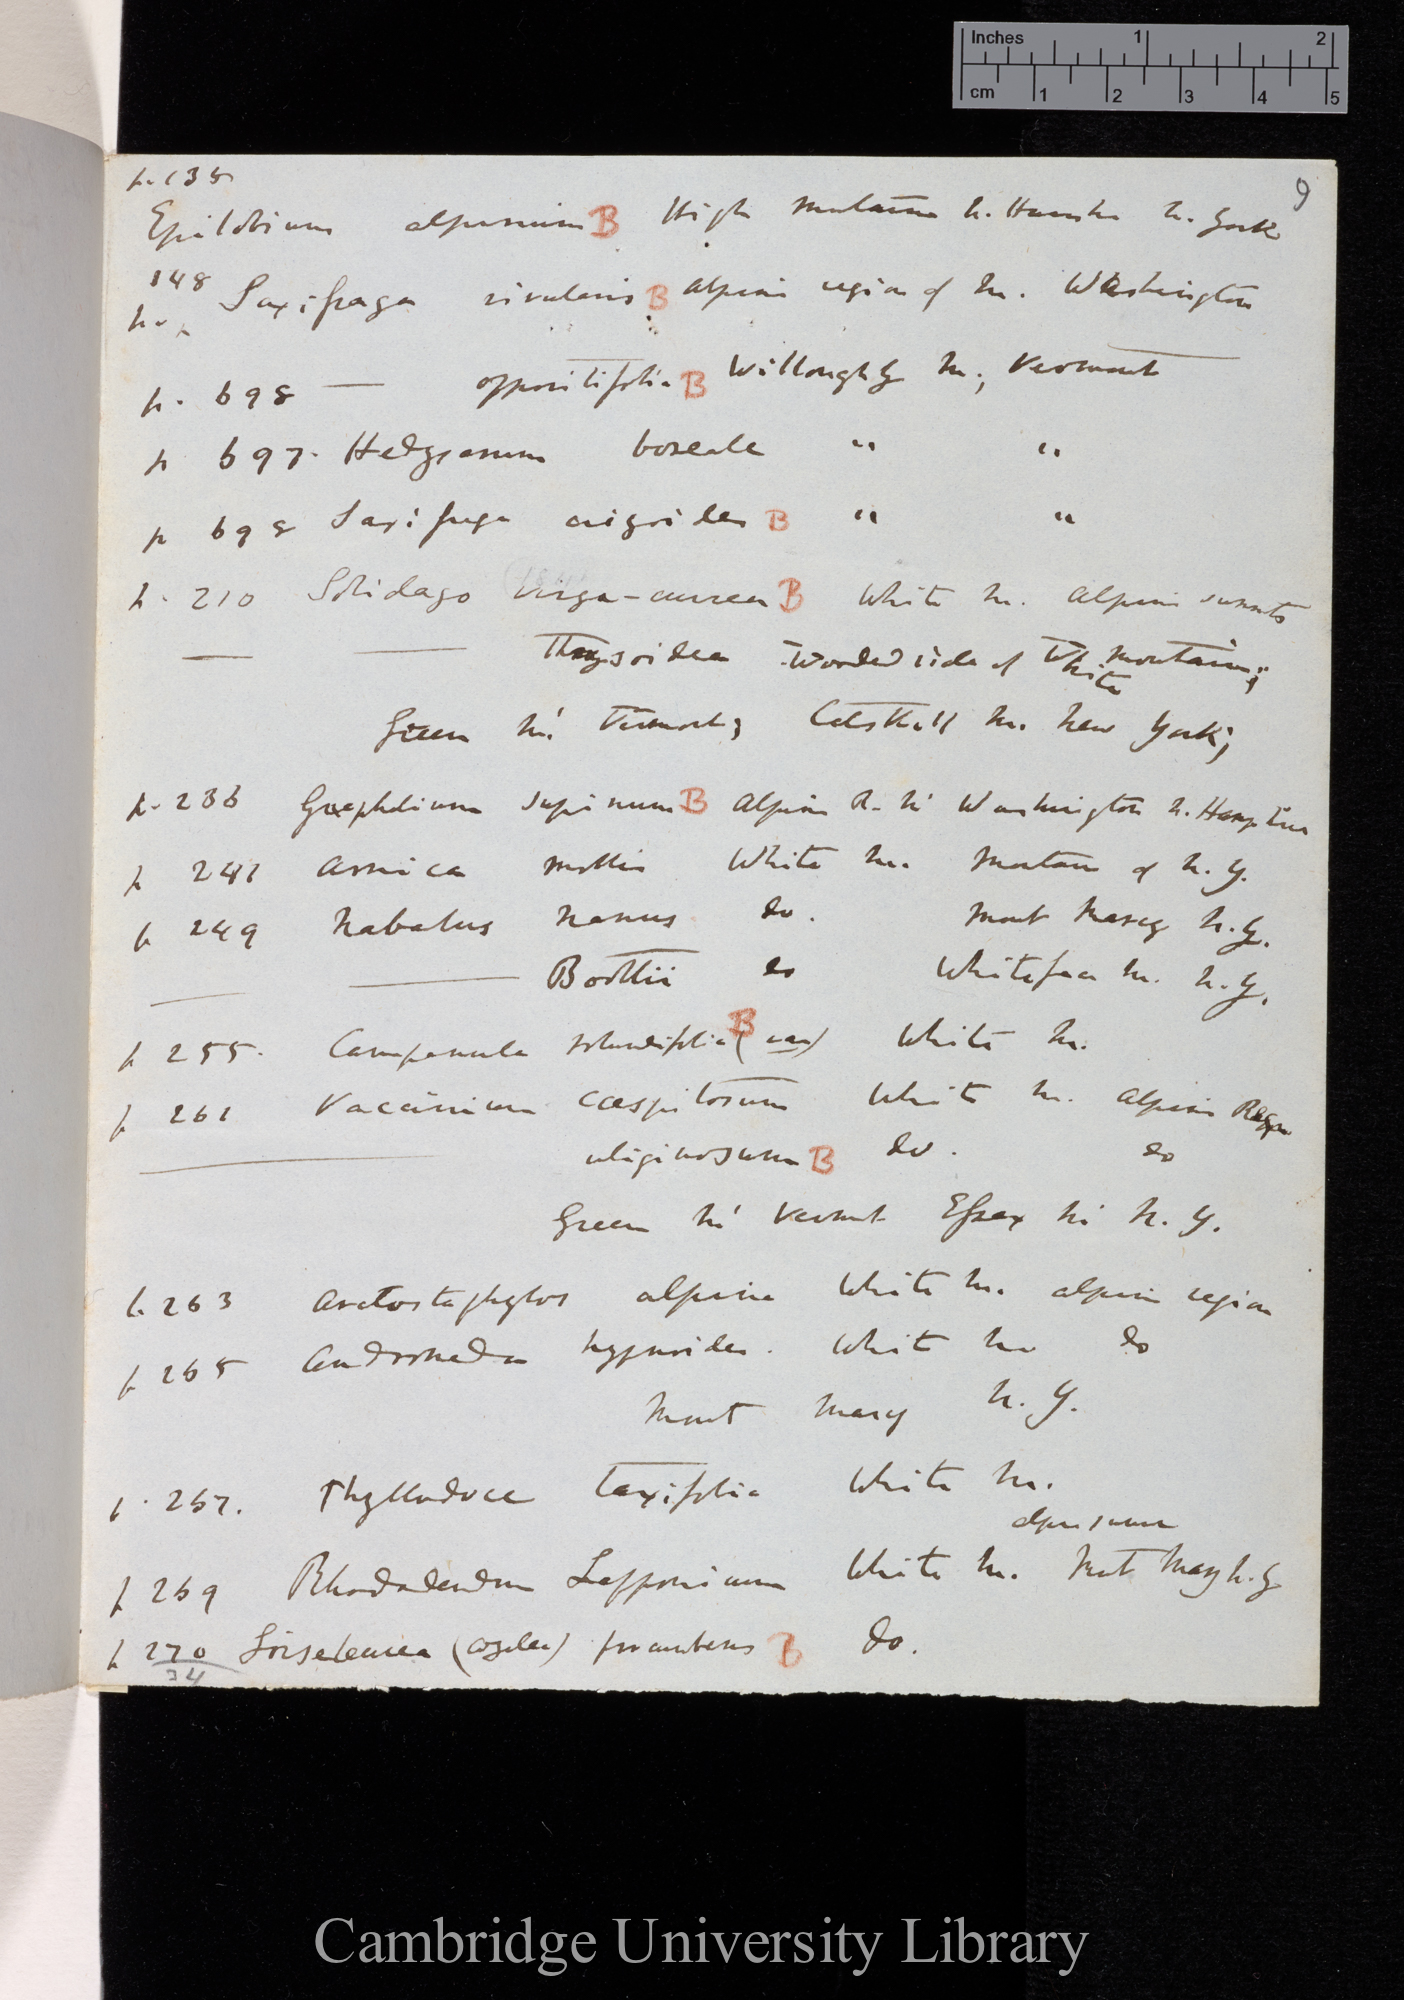 Inches 1 2
cm 1 2 3 4 5
9
p. 135
Epilobium alpinum B High mountains N. Hamsh N. York
148
p. Saxifraga rivularis B Alpine region of M. Washington
p. 698 — oppositifolia B Willoughby M; Vermont
p 697. Hedysarum boreale " "
p 698 Saxifraga aizoides B " "
p. 210 Solidago Virga-aurea B White M. Alpine summits
— — Thyrsoidea Wooded side of White mountains;
Green M. Vermont; Catskill M. New York;
p. 236 Gnaphalium supinum B Alpine R. M Washington N. Hampshire
p 241 Arnica mollis White M. Mountain of N. Y.
p 249 Nabalus nanus do. Mont Marcy N. Y.
— — Boottii do Whiteface M. N. Y.
p 255. Campanula rotundifolia B (var) White M.
p 261 Vaccinium caespitosum White M. Alpine Region
— uliginosum B do. do
Green M Vermont Essex M N. Y.
p. 263 Arctostaphylos alpina White M. alpine region
p 265 Andromeda hypnoides. White M do
Mont Marcy N. Y.
p. 267. Phyllodoce taxifolia White M.
alpine summ
p 269 Rhododendron Lapponicum White M. Mont Marcy N. Y
p 270 Loiseleuria (Azalea) procumbens B do.
34
Cambridge University Library